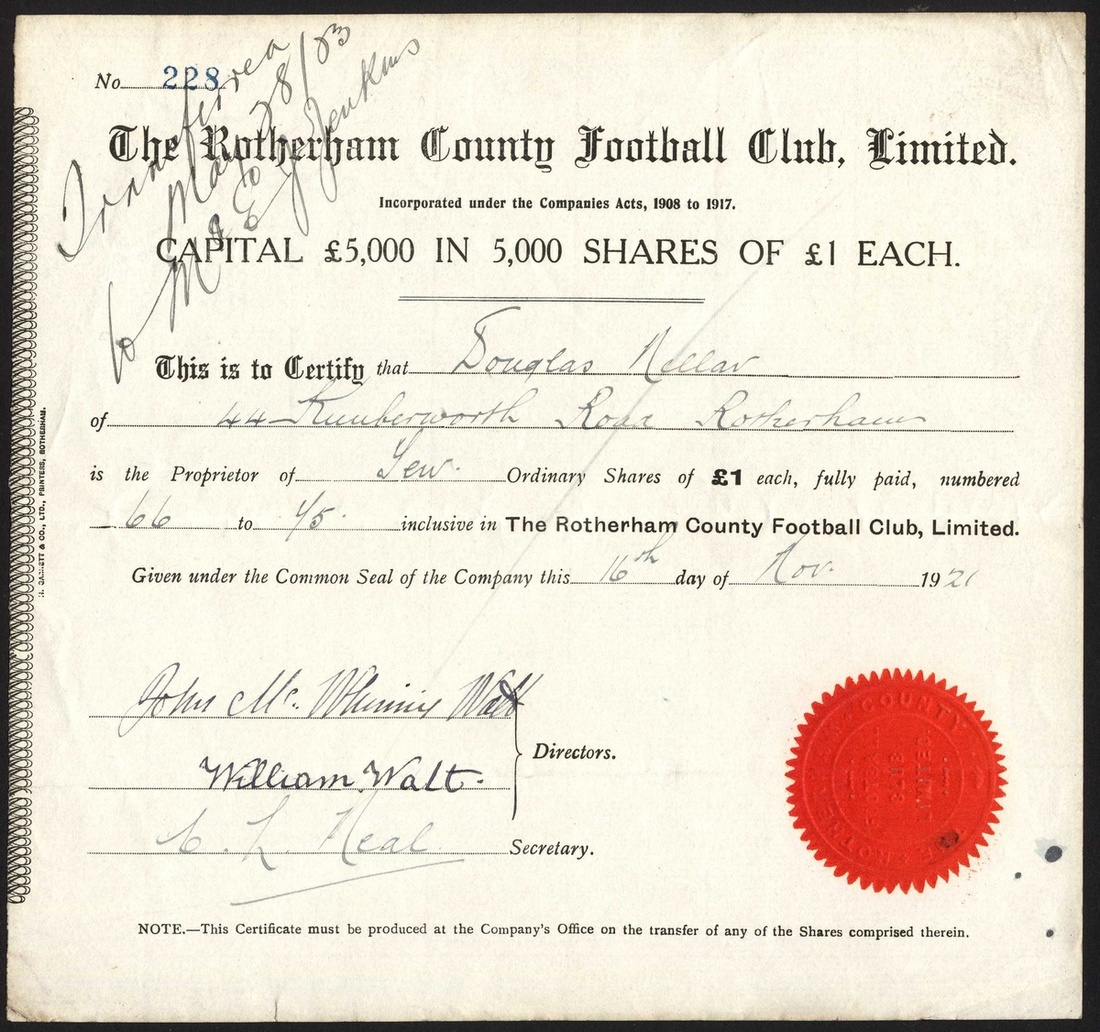 No 228
Transferred
May 28/23
to Mr E J Jenkins
The Rotherham County Football Club, Limited.
Incorporated under the Companies Acts, 1908 to 1917.
CAPITAL £5,000 IN 5,000 SHARES OF £1 EACH.
This is to Certify that Douglas
of 44 Kimberworth Road Rotherham
is the Proprietor of Ten Ordinary Shares of £1 each, fully paid, numbered
66 to 75 inclusive in The Rotherham County Football Club, Limited.
Given under the Common Seal of the Company this 16th day of Nov. 1921
John Mc. Whinnie Watt
William Watt. Directors.
C. L. Neal Secretary.
COUNTY
NOTE.—This Certificate must be produced at the Company's Office on the transfer of any of the Shares comprised therein.
& CO., LTD., PRINTERS, ROTHERHAM.